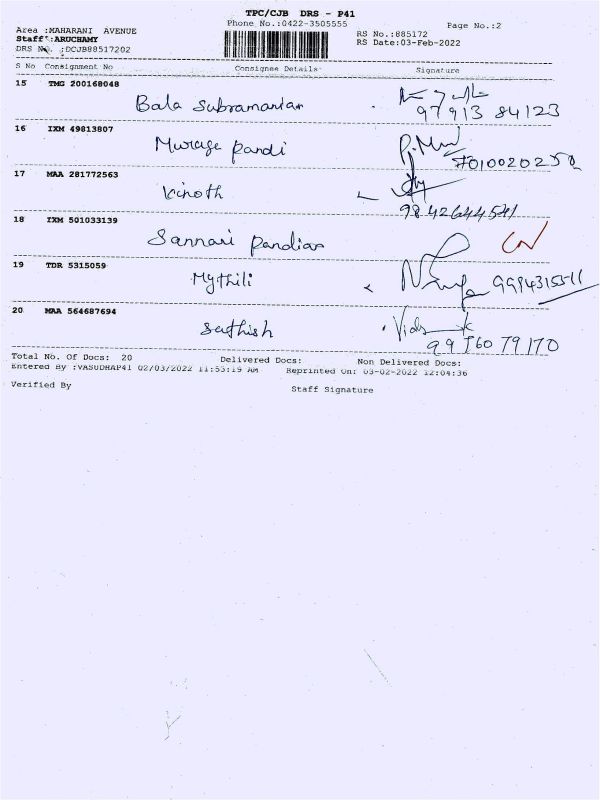 TPC/CJB DRS - P41
Phone No.:0422-3505555
Page No.:2
Area :MAHARANI AVENUE
RS No.:885172
Staff :ARUCHAMY
RS Date:03-Feb-2022
DRS No. :DCJB88517202
S No Consignment No Consignee Details Signature
15 TMG 200168048
Bala Subramanian
97913 84123
16 IXM 49813807
Muruga Pandi
P. 
17 MAA 281772563
Vinoth
9842644541
18 IXM 501033139
Sannasi Pandian
19 TDR 5315059
Mythili
20 MAA 564687694
Sathish
99760 79170
Total No. Of Docs: 20 Delivered Docs: Non Delivered Docs:
Entered By :VASUDHAP41 02/03/2022 11:53:19 AM Reprinted On: 03-02-2022 12:04:36
Verified By Staff Signature